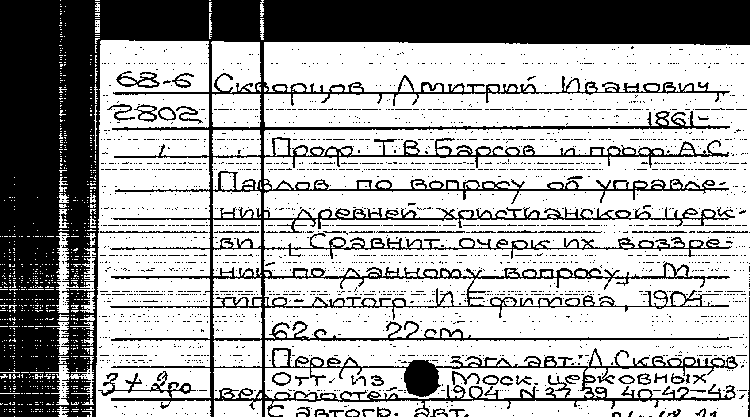 68-6 Скворцов, Дмитрий Иванович,
2802 1861-
Проф. Т.В. Барсов и проф. А.С.
Павлов по вопросу об управле-
нии древней христианской церк-
ви. [Сравнит. очерк их воззре-
ний по данному вопросу]. М.,
типо-литогр. И. Ефимова, 1904.
62 с. 22 см.
Перед загл. авт.: Д. Скворцов.
3 + 2до Отт. из Моск. церковных
ведомостей, 1904, N 37, 39, 40, 42-43.
С автогр. авт.